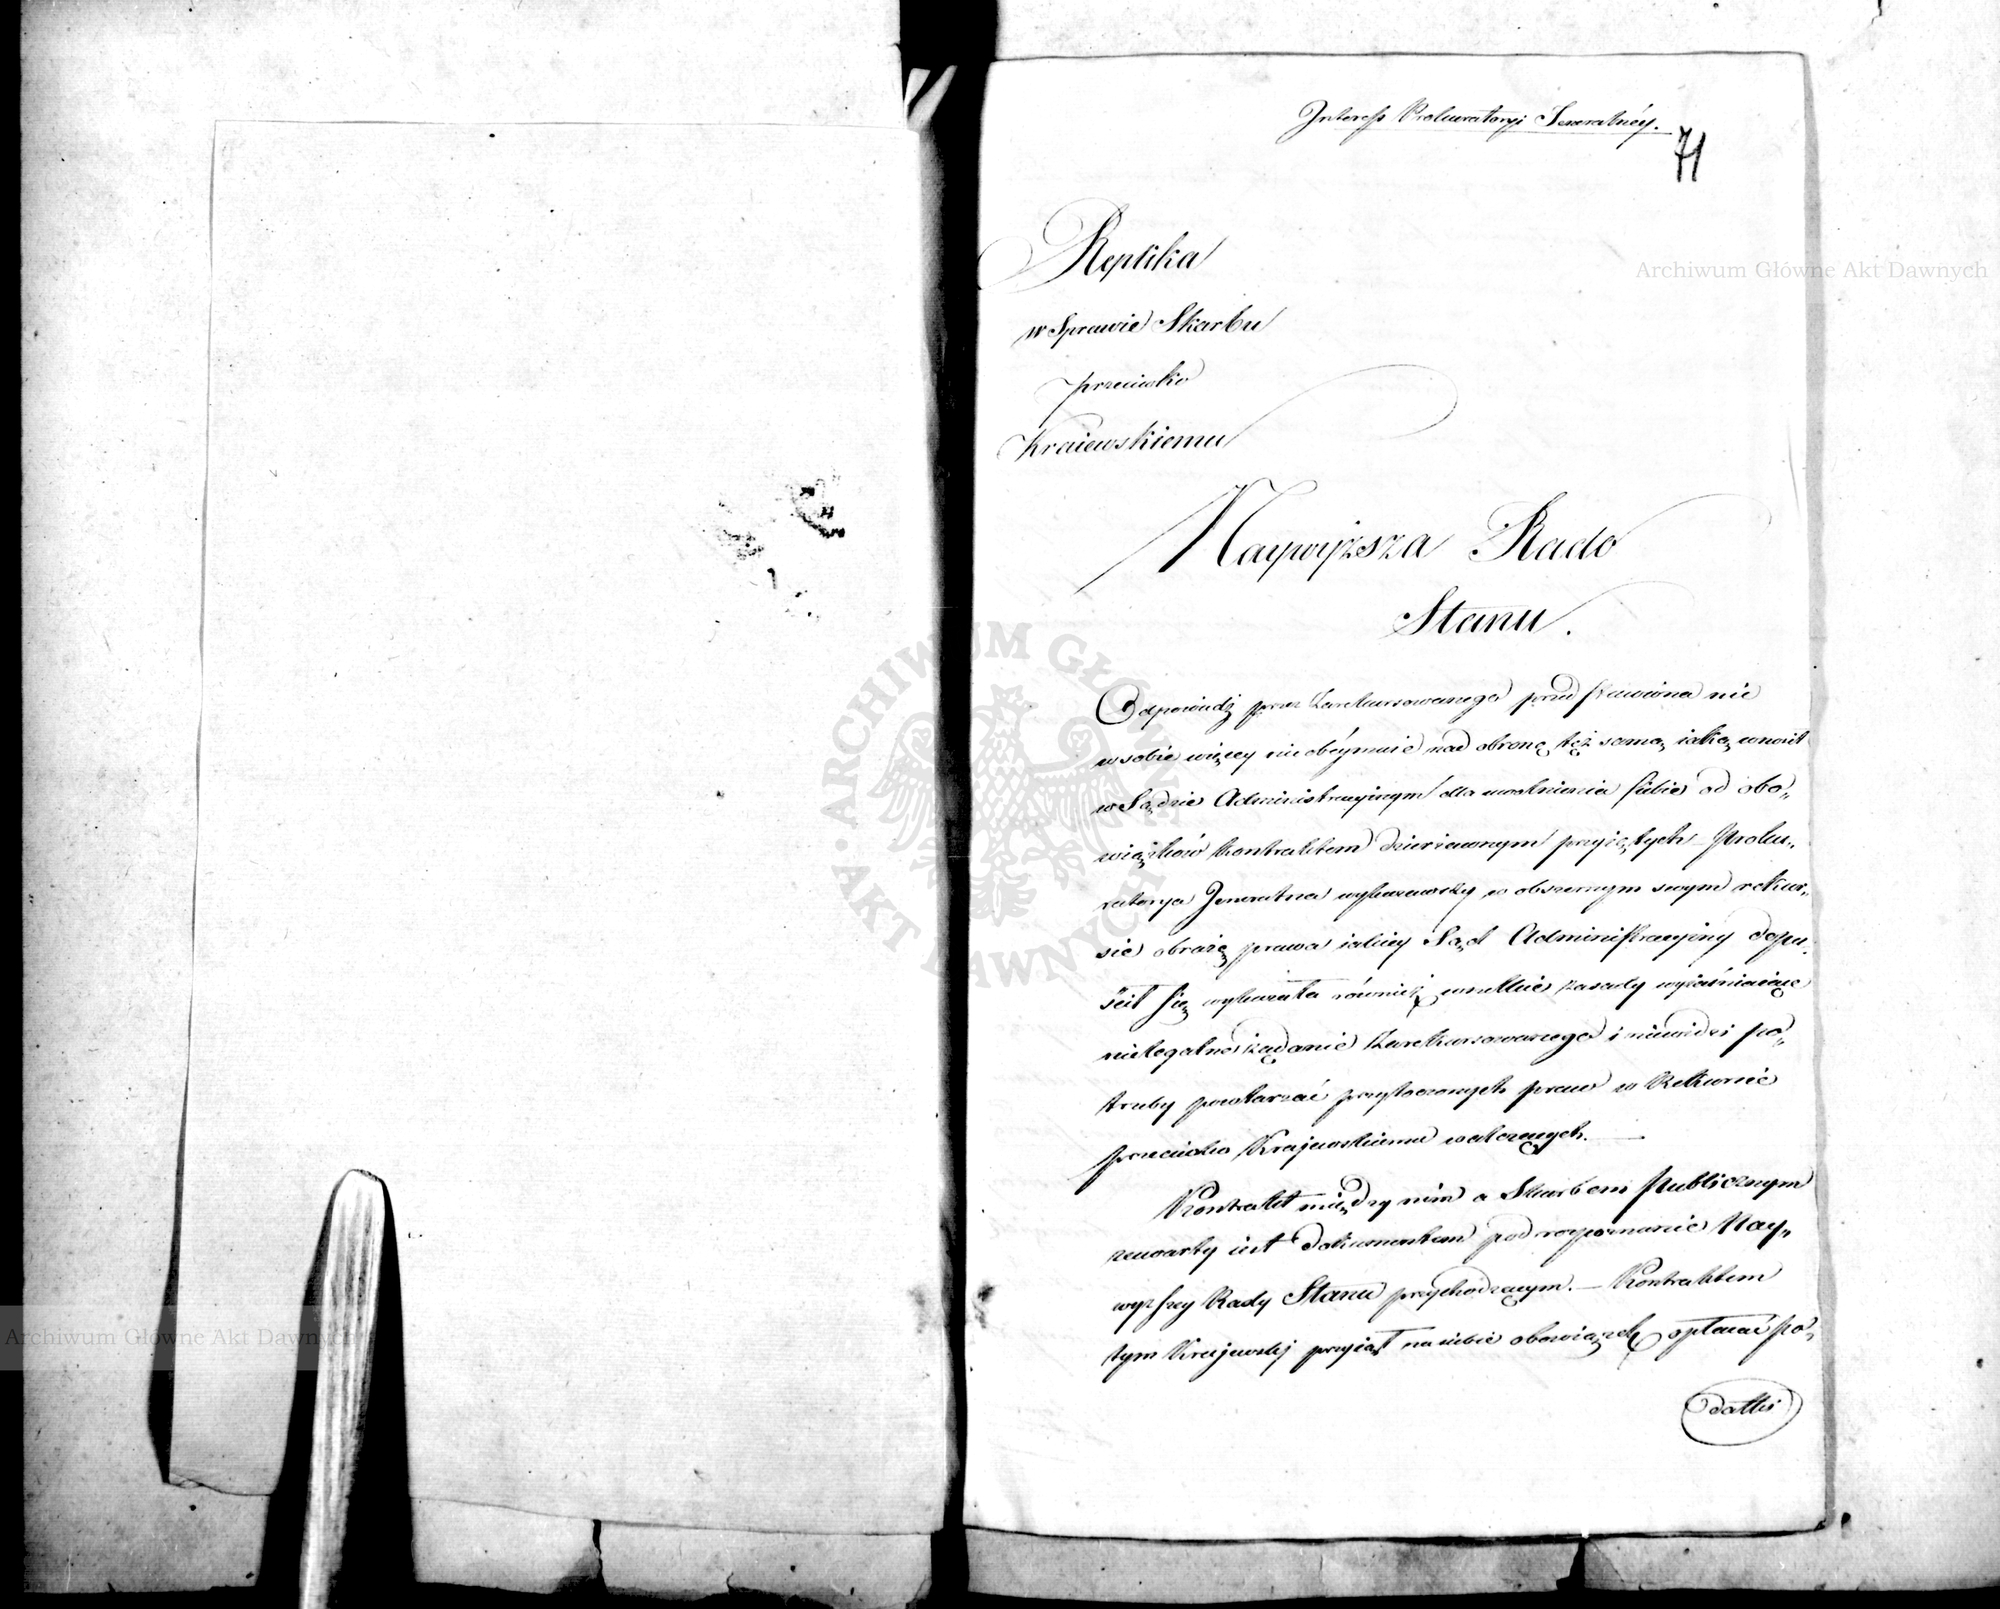 Interess Prokuratoryi Jeneralnéy.
71
Replika
w Sprawie Skarbu
przeciwko
Kraiewskiemu
Naywyższa Rado
Stanu.
Odpowiedź przez Zarekursowanego przedstawiona nic
w sobie więcey nieobéymuie nad obronę tęż samą iaką wnosił
w Sądzie Administracyinym dla uwolnienia siebie od obo„
wiązków kontraktem dzierżawnym przyiętych – Proku„
ratorya Jeneralna wykazawszy w obszernym swym rekur„
sie obrazę prawa iakiey Sąd Administracyiny dopu„
ścił się wykazała również wszelkie zasady wyiaśniaiące
nielegalne żądanie Zarekursowanego i niewidzi po„
trzeby powtarzać przytoczonych praw w Rekursie
przeciwko Krajewskiemu walczących. —
Kontrakt między nim a Skarbem Publicznym
zawarty iest dokumentem pod rozpoznanie Nay„
wyższey Rady Stanu przychodzącym. — Kontraktem
tym Krajewski przyiął na siebie obowiązek opłacać po„
datki
Archiwum Główne Akt Dawnych
Archiwum Główne Akt Dawnych
ARCHIWUM GŁÓWNE AKT DAWNYCH